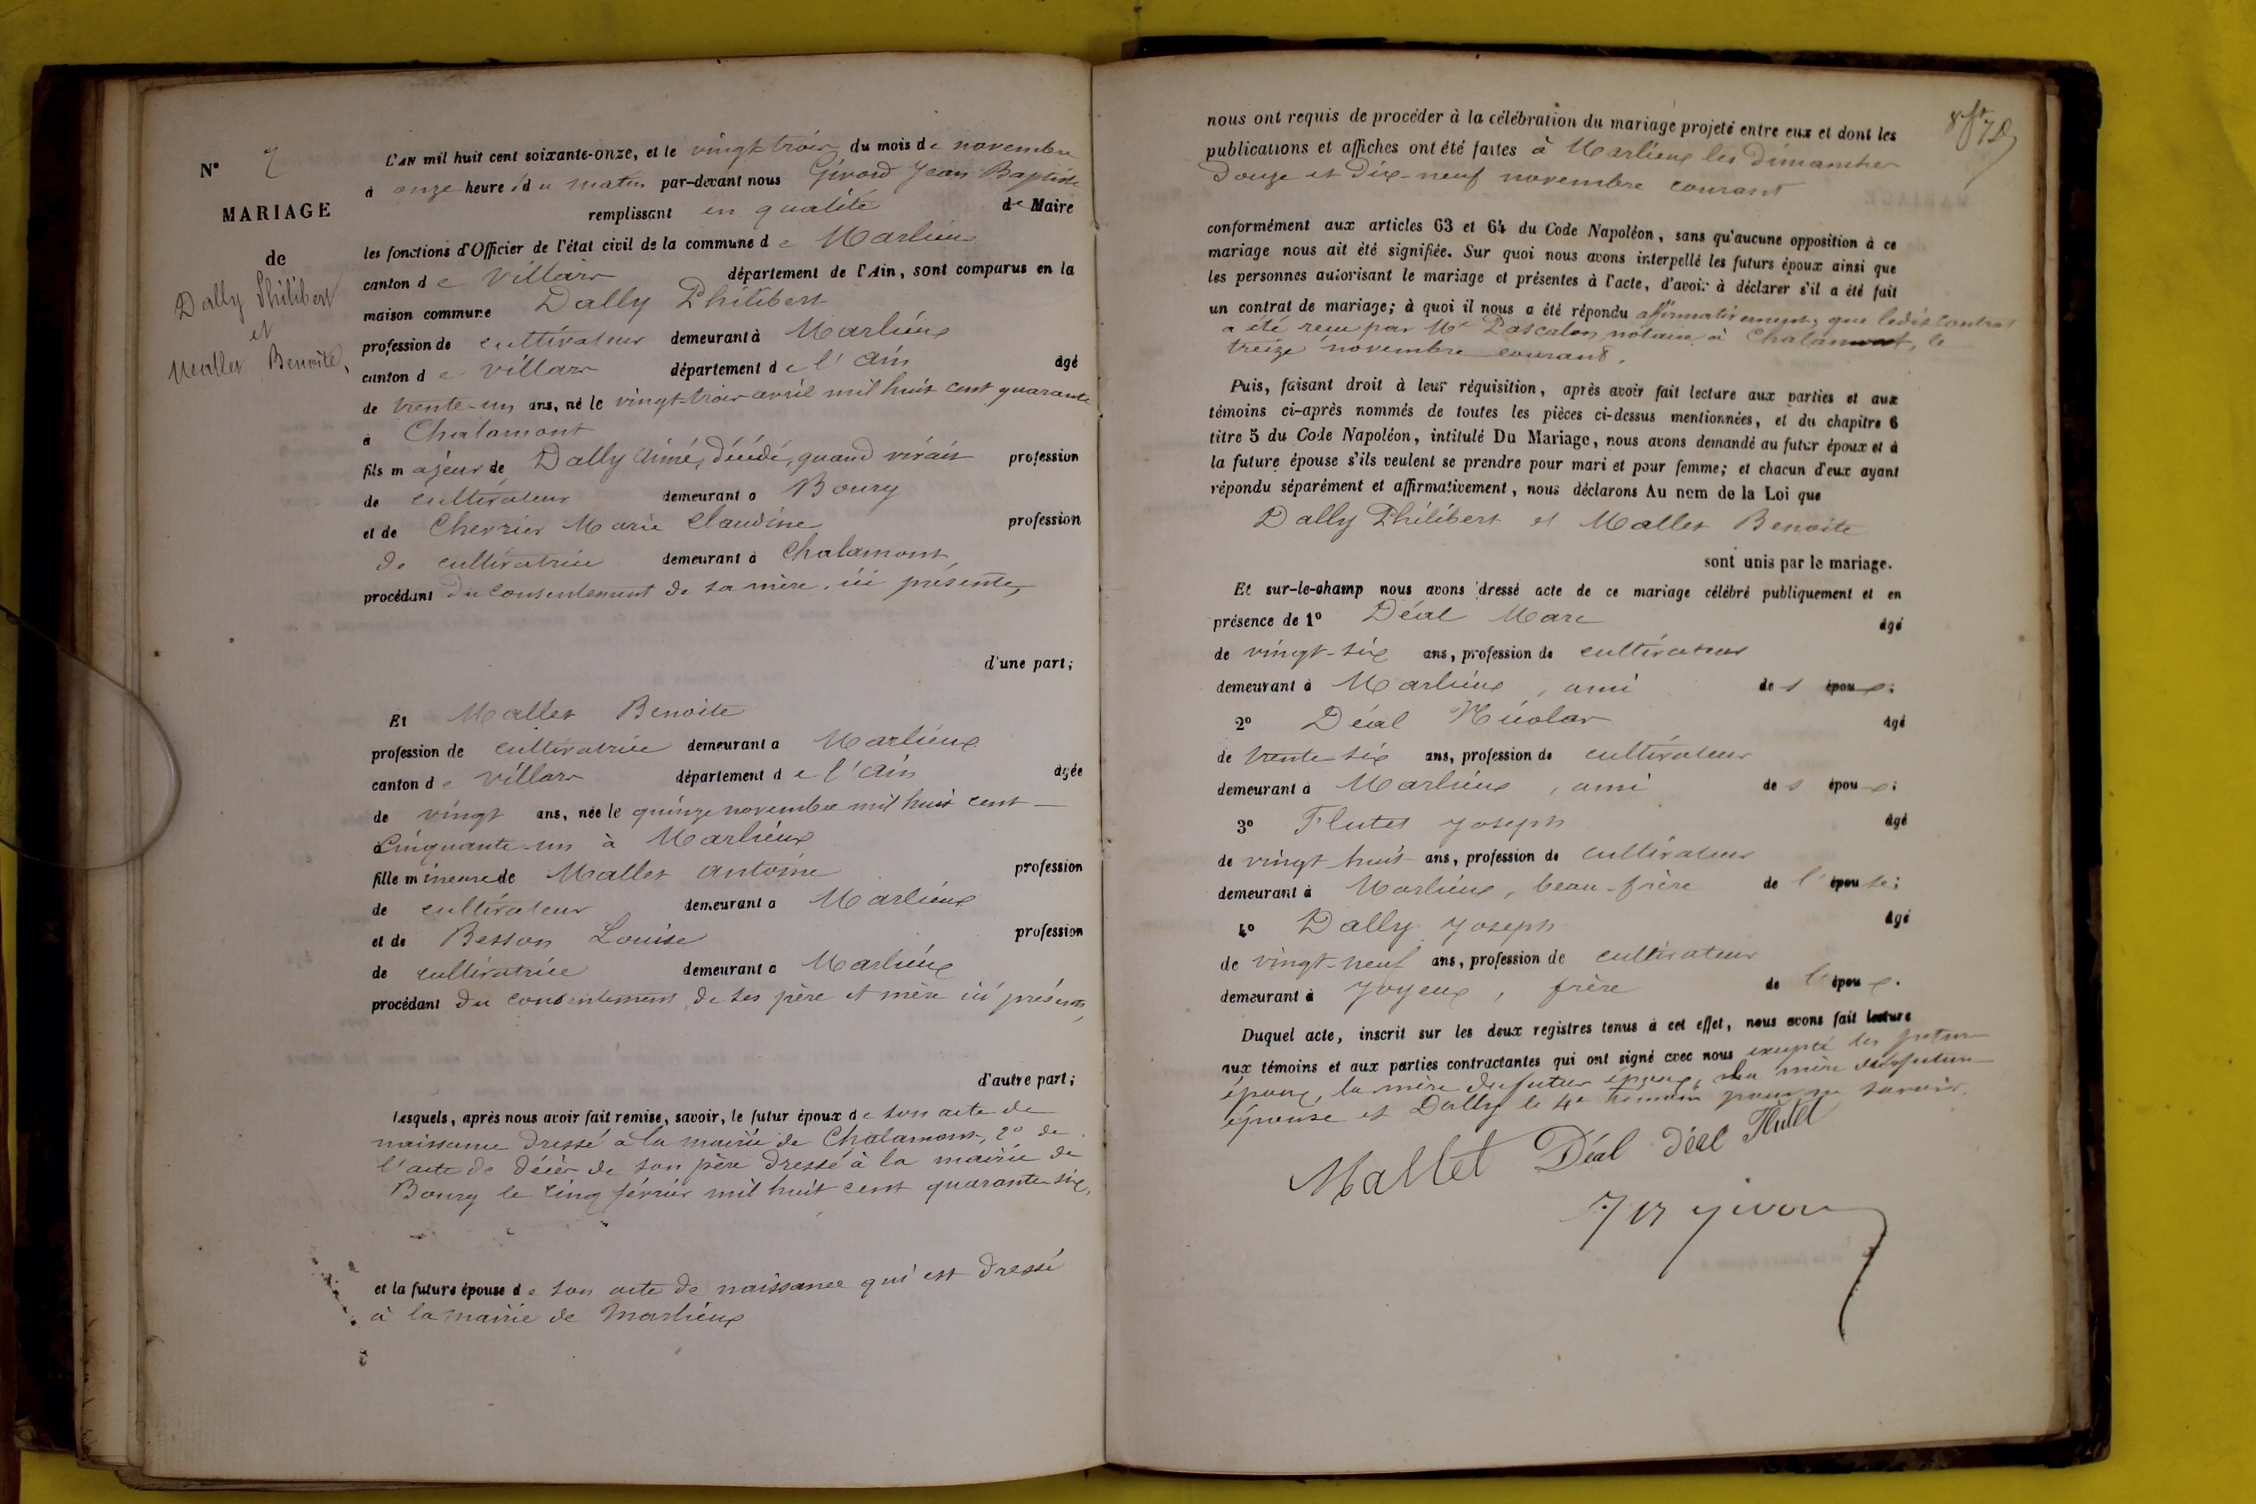 N° 7
MARIAGE
de
Dally Philibert
et
Mallet Benoite,
L'AN mil huit cent soixante-onze, et le vingt-trois du mois de novembre
à onze heures du matin par-devant nous Givord Jean Baptiste
remplissant en qualité de Maire
les fonctions d'Officier de l'état civil de la commune de Marlieux
canton de Villars département de l'Ain, sont comparus en la
maison commune Dally Philibert
profession de cultivateur demeurant à Marlieux
canton de Villars département de l'Ain âgé
de trente-un ans, né le vingt-trois avril mil huit cent quarante
à Chalamont
fils majeur de Dally Aimé, décédé, quand vivait profession
de cultivateur demeurant à Bourg
et de Cherrier Marie Claudine profession
de cultivatrice demeurant à Chalamont,
procédant du consentement de sa mère, ici présente,
d'une part;
Et Mallet Benoite
profession de cultivatrice demeurant à Marlieux
canton de Villars département de l'Ain âgée
de vingt ans, née le quinze novembre mil huit cent
cinquante-un à Marlieux
fille mineure de Mallet Antoine profession
de cultivateur demeurant à Marlieux
et de Besson Louise profession
de cultivatrice demeurant à Marlieux
procédant du consentement de ses père et mère ici présents,
d'autre part;
Lesquels, après nous avoir fait remise, savoir, le futur époux de son acte de
naissance dressé à la mairie de Chalamont, 2° de
l'acte de décès de son père dressé à la mairie de
Bourg le cinq février mil huit cent quarante-six,
et la future épouse de son acte de naissance qui est dressé
à la mairie de Marlieux
nous ont requis de procéder à la célébration du mariage projeté entre eux et dont les
publications et affiches ont été faites à Marlieux les dimanches
douze et dix-neuf novembre courant
conformément aux articles 63 et 64 du Code Napoléon, sans qu'aucune opposition à ce
mariage nous ait été signifiée. Sur quoi nous avons interpellé les futurs époux ainsi que
les personnes autorisant le mariage et présentes à l'acte, d'avoir à déclarer s'il a été fait
un contrat de mariage; à quoi il nous a été répondu affirmativement, que ledit contrat
a été reçu par Me Pascalon, notaire à Chalamont, le
treize novembre courant.
Puis, faisant droit à leur réquisition, après avoir fait lecture aux parties et aux
témoins ci-après nommés de toutes les pièces ci-dessus mentionnées, et du chapitre 6
titre 5 du Code Napoléon, intitulé Du Mariage, nous avons demandé au futur époux et à
la future épouse s'ils veulent se prendre pour mari et pour femme; et chacun d'eux ayant
répondu séparément et affirmativement, nous déclarons Au nom de la Loi que
Dally Philibert et Mallet Benoite
sont unis par le mariage.
Et sur-le-champ nous avons dressé acte de ce mariage célébré publiquement et en
présence de 1° Déal Marc âgé
de vingt-six ans, profession de cultivateur
demeurant à Marlieux, ami des époux;
2° Déal Nicolas âgé
de trente-six ans, profession de cultivateur
demeurant à Marlieux, ami des époux;
3° Flutet Joseph âgé
de vingt-huit ans, profession de cultivateur
demeurant à Marlieux, beau-frère de l'épouse;
4° Dally Joseph âgé
de vingt-neuf ans, profession de cultivateur
demeurant à Joyeux, frère de l'époux.
Duquel acte, inscrit sur les deux registres tenus à cet effet, nous avons fait lecture
aux témoins et aux parties contractantes qui ont signé avec nous excepté les futurs
époux, la mère du futur époux, la mère de la future
épouse et Dally le 4e témoin pour ne savoir.
Mallet Déal Déal Flutet